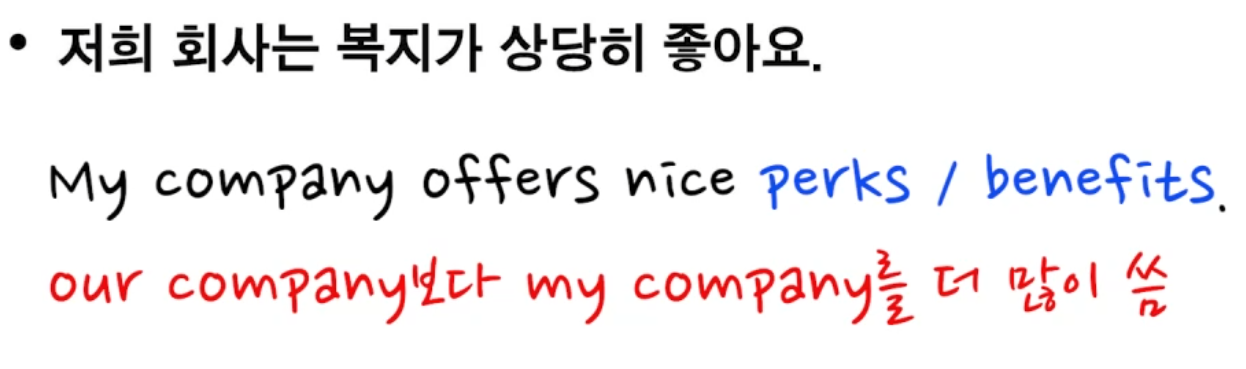 • 저희 회사는 복지가 상당히 좋아요.
My company offers nice perks / benefits.
our company보다 my company를 더 많이 씀